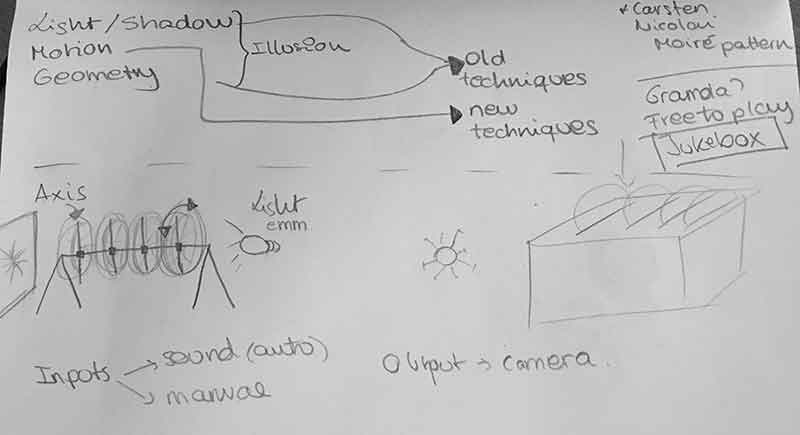 Light/Shadow
Motion
Geometry
Illusion
old
techniques
new
techniques
* Carsten
Nicolai
Moiré pattern
Granda?
Free to play
Jukebox
Axis
Light
emm.
Inputs → sound (auto)
↘ manual
Output → camera.